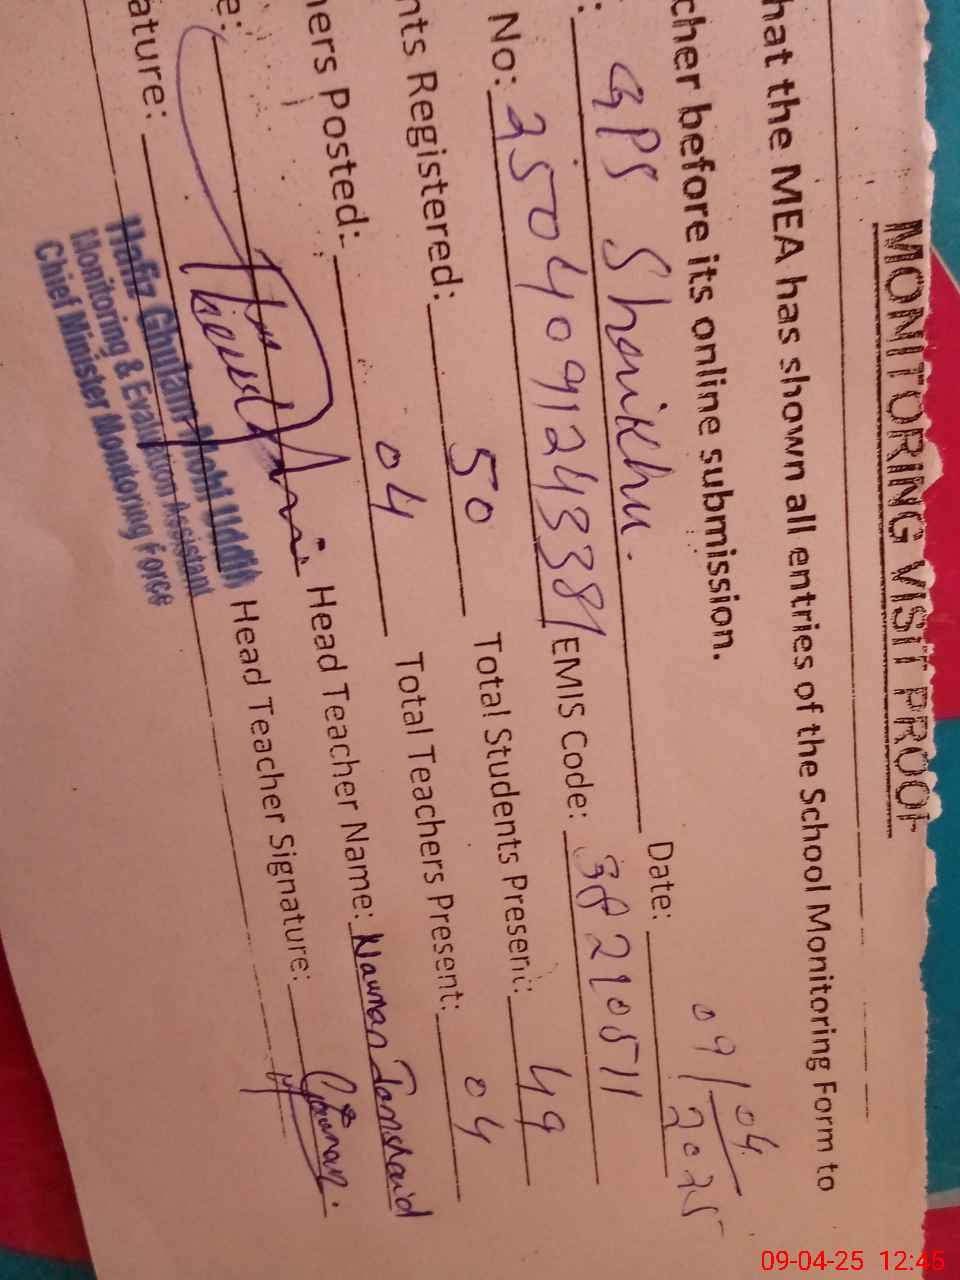 MONITORING VISIT PROOF
hat the MEA has shown all entries of the School Monitoring Form to
cher before its online submission.
: GPS Shanikhu. Date: 09/04/2025
No: 2504091243381 EMIS Code: 38210511
nts Registered: 50 Total Students Present: 49
hers Posted: 04 Total Teachers Present: 04
e: Head Teacher Name: Nauman Jamshaid
ature: Head Teacher Signature:
Hafiz Ghulam Mohi Uddin
Monitoring & Evaluation Assistant
Chief Minister Monitoring Force
09-04-25 12:45